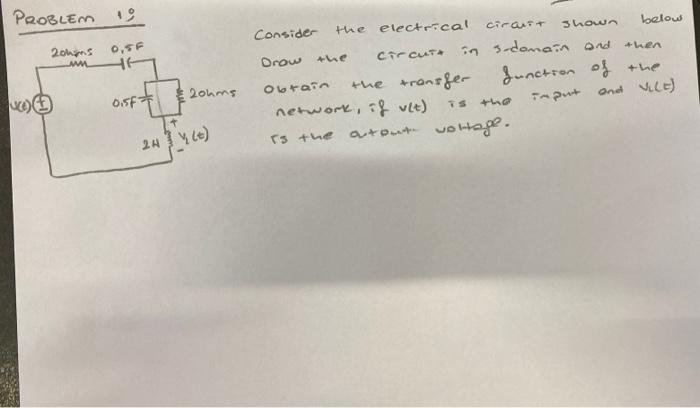 PROBLEM 1:
Consider the electrical circuit shown below
Draw the circuit in s-domain and then
Obtain the transfer function of the
network, if v(t) is the input and VL(t)
is the output voltage.
2ohms 0,5F
v(t)
0,5F
2ohms
+
2H
VL(t)
-